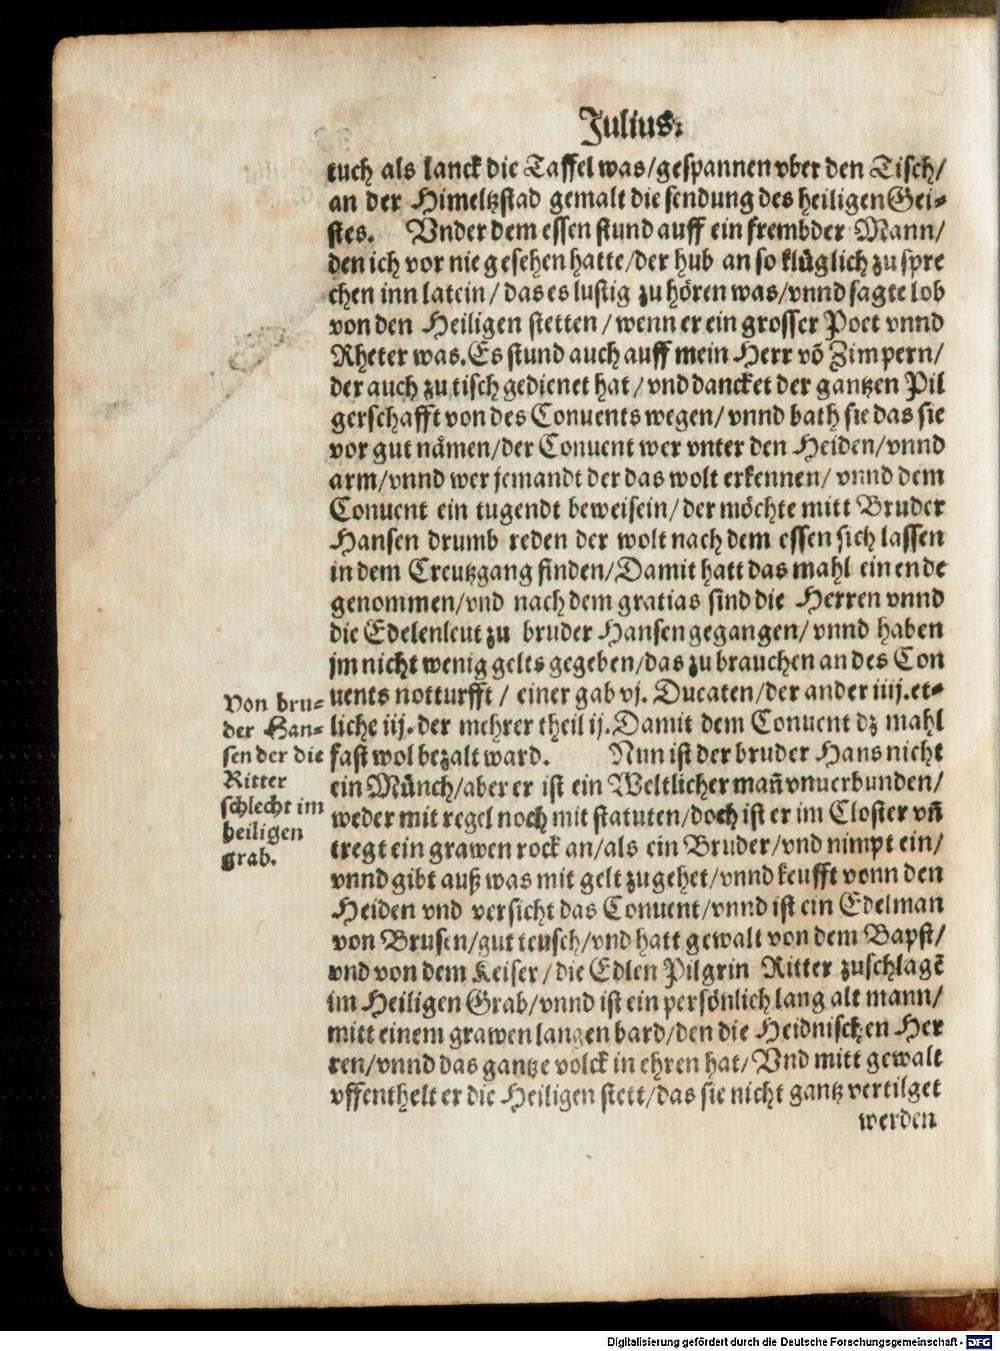 Julius.
tuch als lanck die Taffel was/gespannen vber den Tisch/
an der Himeltzstad gemalt die sendung des heiligen Gei-
stes. Vnder dem essen stund auff ein frembder Mann/
den ich vor nie gesehen hatte/der hub an so klüglich zu spre
chen inn latein/das es lustig zu hören was/vnnd sagte lob
von den Heiligen stetten/wenn er ein grosser Poet vnnd
Rheter was. Es stund auch auff mein Herr võ Zimpern/
der auch zu tisch gedienet hat/vnd dancket der gantzen Pil
gerschafft von des Conuents wegen/vnnd bath sie das sie
vor gut nämen/der Conuent wer vnter den Heiden/vnnd
arm/vnnd wer jemandt der das wolt erkennen/vnnd dem
Conuent ein tugendt beweisein/der möchte mitt Bruder
Hansen drumb reden der wolt nach dem essen sich lassen
in dem Creutzgang finden/Damit hatt das mahl ein ende
genommen/vnd nach dem gratias sind die Herren vnnd
die Edelenleut zu bruder Hansen gegangen/vnnd haben
jm nicht wenig gelts gegeben/das zu brauchen an des Con
uents notturfft/einer gab vj. Ducaten/der ander iiij. et-
liche iij. der mehrer theil ij. Damit dem Conuent dz mahl
fast wol bezalt ward. Nun ist der bruder Hans nicht
ein Münch/aber er ist ein Weltlicher mañ vnuerbunden/
weder mit regel noch mit statuten/doch ist er im Closter vñ
tregt ein grawen rock an/als ein Bruder/vnd nimpt ein/
vnnd gibt auß was mit gelt zugehet/vnnd keufft vonn den
Heiden vnd versicht das Conuent/vnnd ist ein Edelman
von Brusen/gut teusch/vnd hatt gewalt von dem Bapst/
vnd von dem Keiser/die Edlen Pilgrin Ritter zuschlagẽ
im Heiligen Grab/vnnd ist ein persönlich lang alt mann/
mitt einem grawen langen bard/den die Heidnischen Her
ren/vnnd das gantze volck in ehren hat/Vnd mitt gewalt
vffenthelt er die Heiligen stett/das sie nicht gantz vertilget
werden
Von bru-
der Han-
sen der die
Ritter
schlecht im
heiligen
grab.
Digitalisierung gefördert durch die Deutsche Forschungsgemeinschaft - DFG